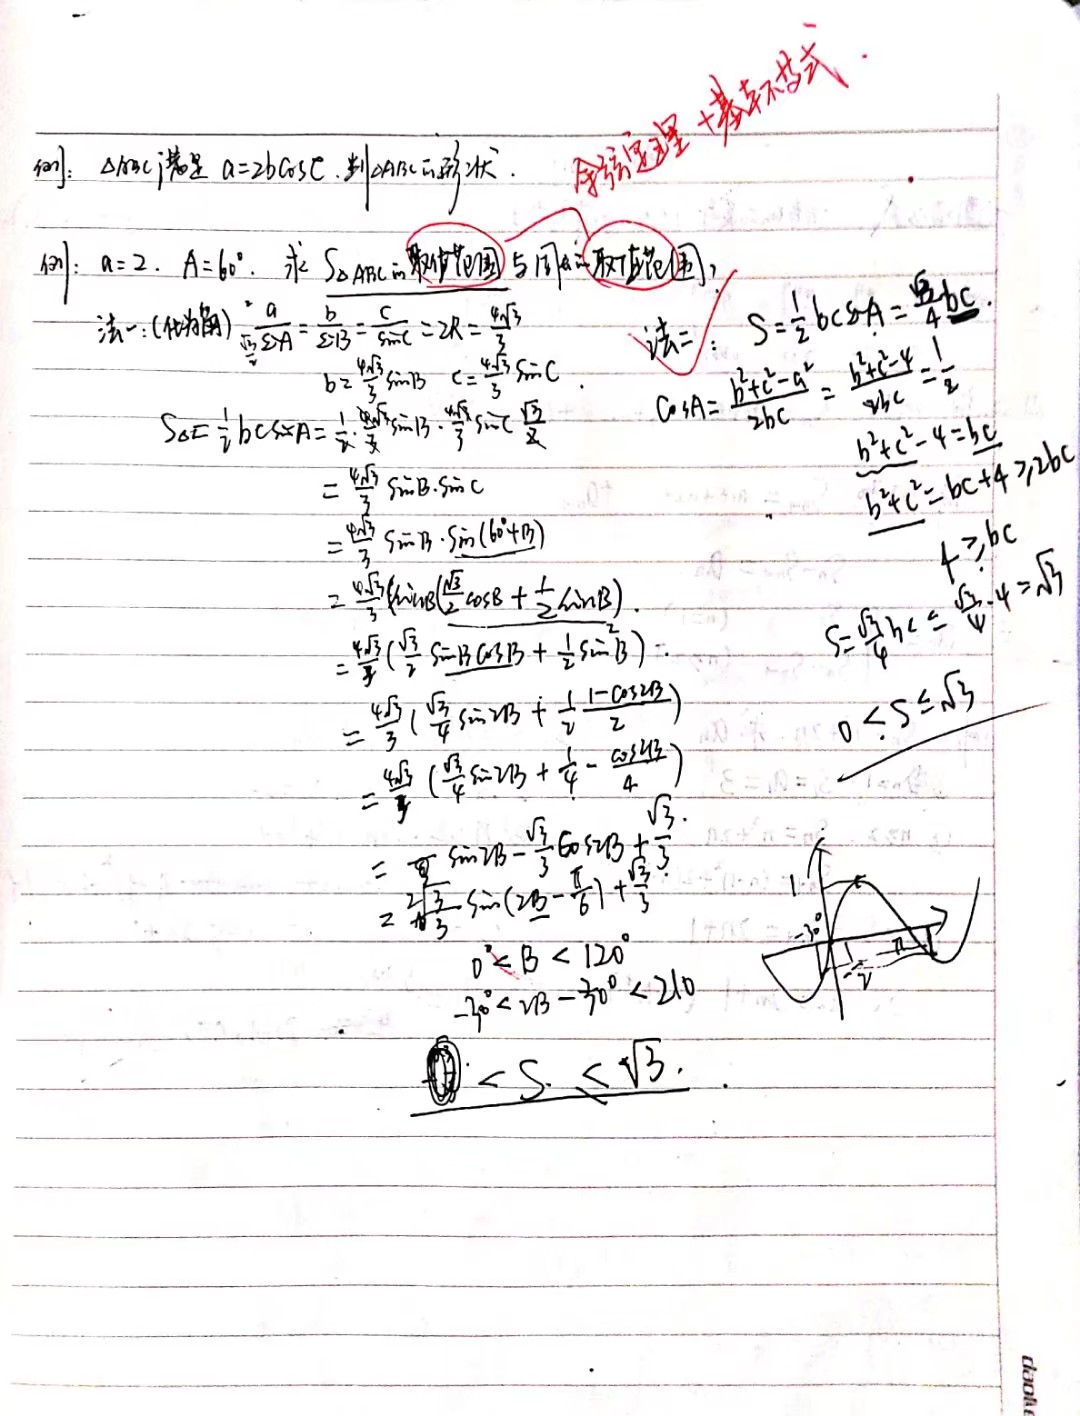 余弦定理+基本不等式.
例: △ABC满足 a=2bcosC. 判△ABC的形状.
例: a=2. A=60°. 求 S△ABC的取值范围与周长的取值范围;
法一: (化为角) a/sinA = b/sinB = c/sinC = 2R = 4√3/3
b = 4√3/3 sinB c = 4√3/3 sinC.
S△ = 1/2 bcsinA = 1/2 · 4√3/3 sinB · 4√3/3 sinC · √3/2
= 4√3/3 sinB·sinC
= 4√3/3 sinB·sin(60°+B)
= 4√3/3 (sinB(√3/2 cosB + 1/2 sinB).
= 4√3/3 (√3/2 sinBcosB + 1/2 sin²B)
= 4√3/3 (√3/4 sin2B + 1/2 1-cos2B/2)
= 4√3/3 (√3/4 sin2B + 1/4 - cos2B/4)
= sin2B - √3/3 cos2B + √3/3.
= 2√3/3 sin(2B - π/6) + √3/3
0° < B < 120°
-30° < 2B - 30° < 210
0 < S ≤ √3.
法二: S = 1/2 bcsinA = √3/4 bc.
cosA = b²+c²-a²/2bc = b²+c²-4/2bc = 1/2
b²+c²-4 = bc
b²+c² = bc+4 ≥ 2bc
4 ≥ bc
S = √3/4 bc ≤ √3/4 · 4 = √3
0 < S ≤ √3
1
-30°
π
-1/2
daoke